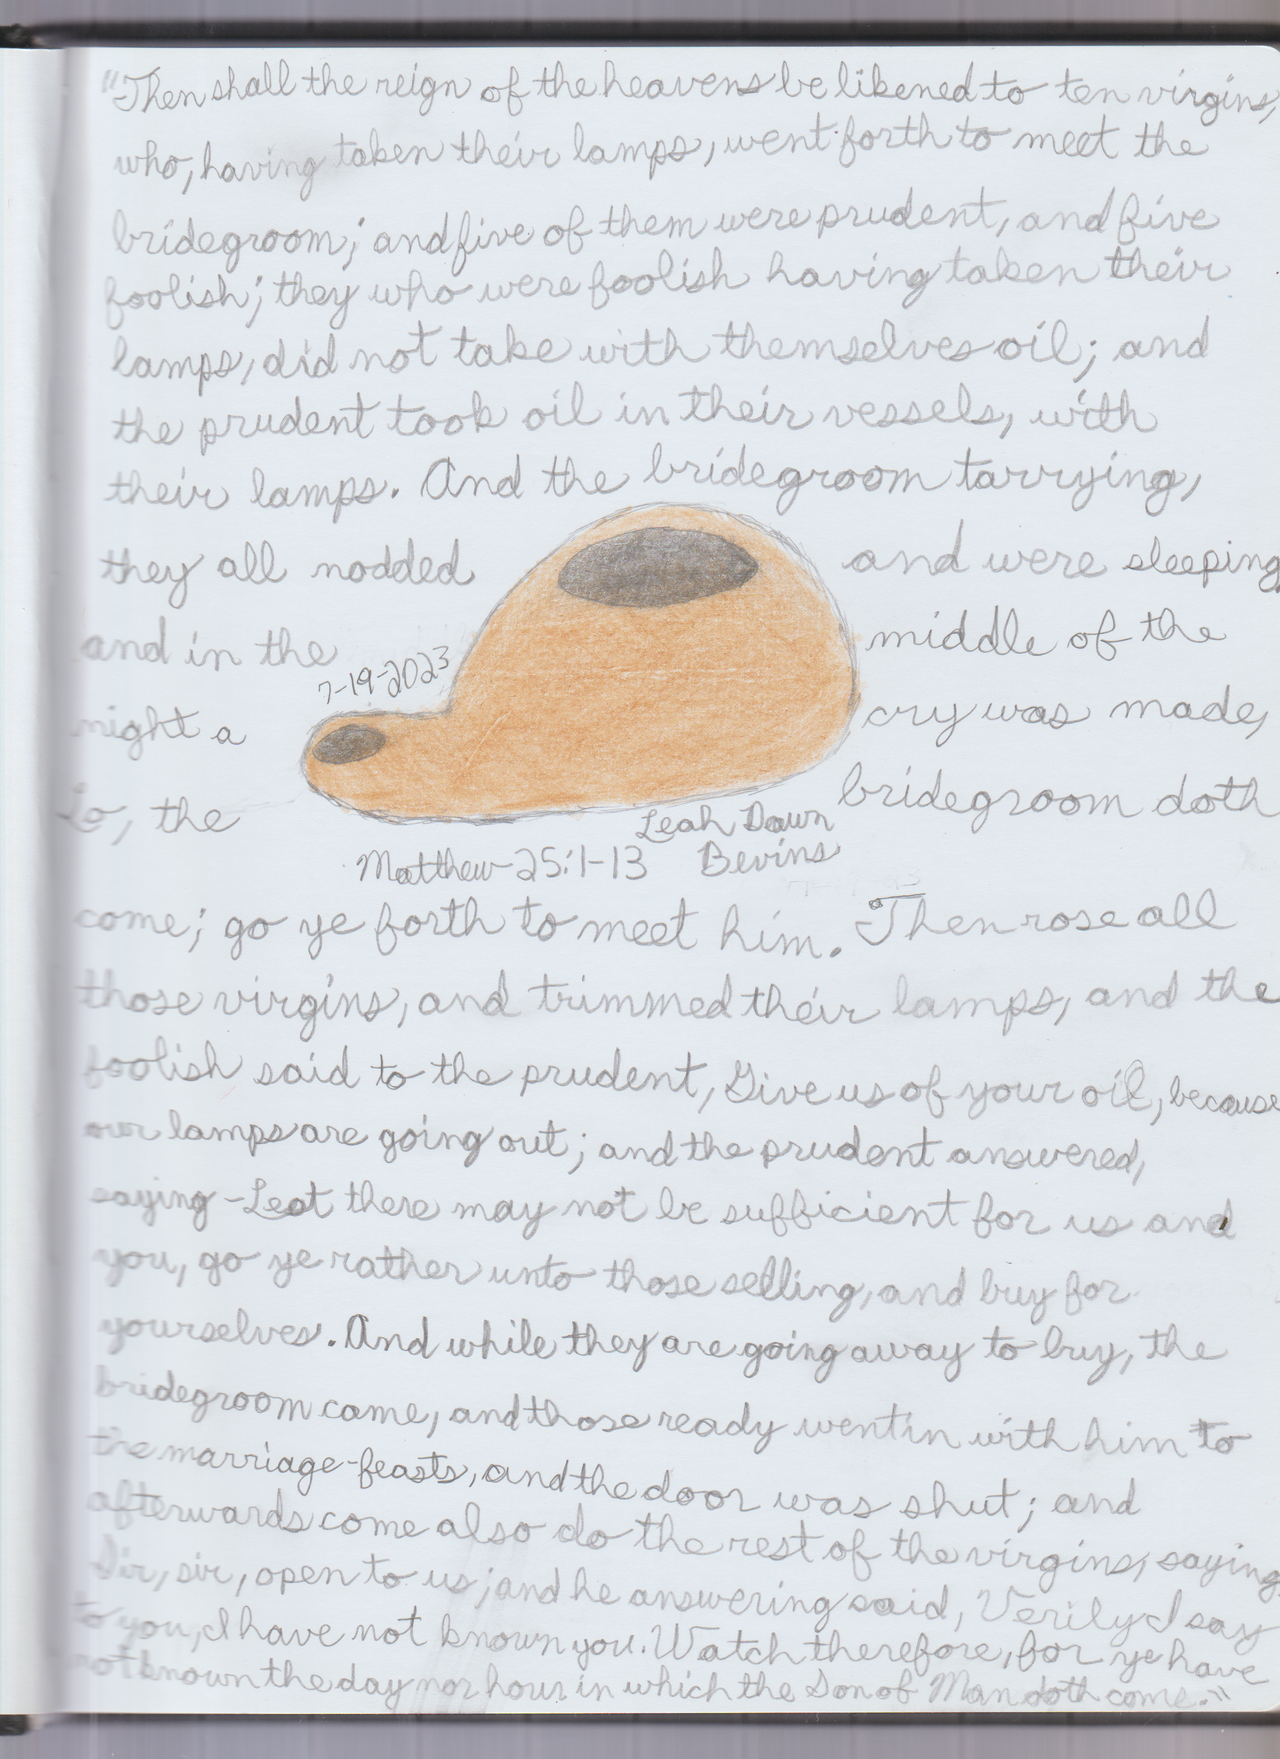 "Then shall the reign of the heavens be likened to ten virgins,
who, having taken their lamps, went forth to meet the
bridegroom; and five of them were prudent, and five
foolish; they who were foolish having taken their
lamps, did not take with themselves oil; and
the prudent took oil in their vessels, with
their lamps. And the bridegroom tarrying,
they all nodded and were sleeping,
and in the middle of the
7-19-2023
night a cry was made,
Lo, the bridegroom doth
Leah Dawn
Bevins
Matthew-25:1-13
come; go ye forth to meet him. Then rose all
those virgins, and trimmed their lamps, and the
foolish said to the prudent, Give us of your oil, because
our lamps are going out; and the prudent answered,
saying - Lest there may not be sufficient for us and
you, go ye rather unto those selling, and buy for
yourselves. And while they are going away to buy, the
bridegroom came, and those ready went in with him to
the marriage-feasts, and the door was shut; and
afterwards come also do the rest of the virgins, saying
Sir, sir, open to us; and he answering said, Verily I say
to you, I have not known you. Watch therefore, for ye have
not known the day nor hour in which the Son of Man doth come."